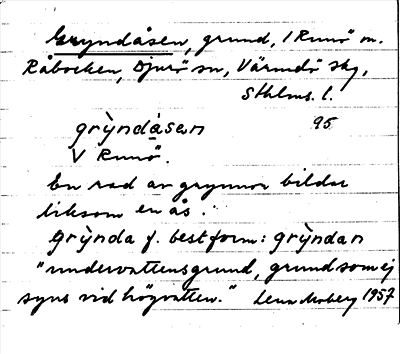 Gryndåsen, grund, i Runö m.
Råbocken, Djurö sn, Värmdö skg,
Sthlms. l.
gry̌ndåsen 95
V Runö.
En rad av grynnor bildar
liksom en ås.
gry̌nda f. best form: gry̌ndan
"undervattensgrund, grund som ej
syns vid högvatten." Lena Moberg 1957